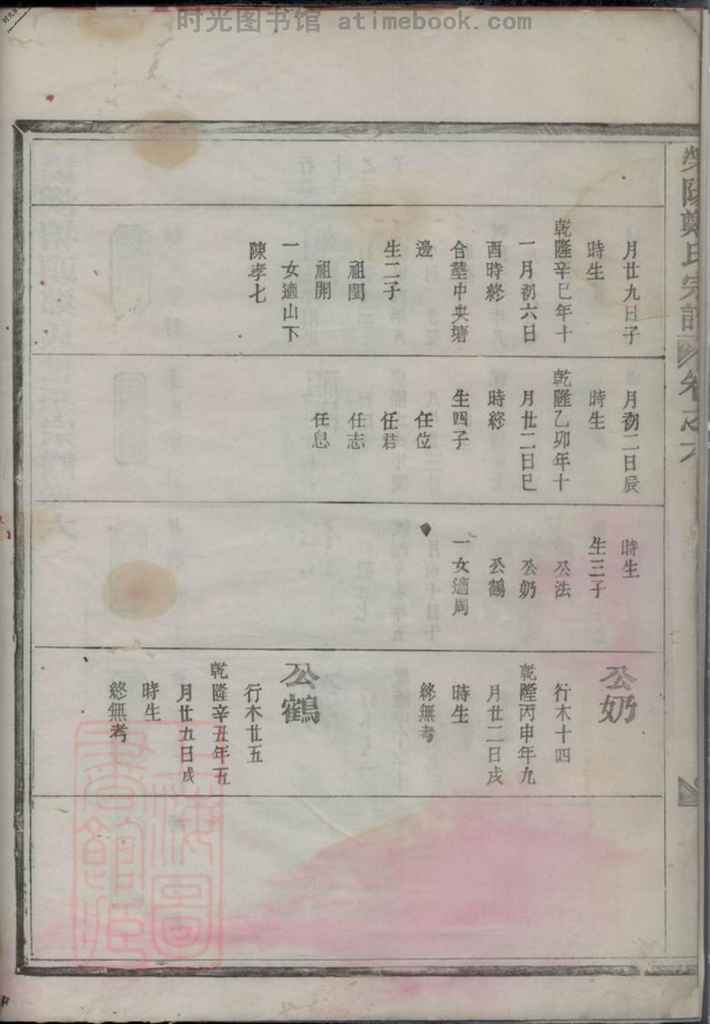 时光图书馆 atimebook.com
滎陽鄭氏宗譜
卷之六
月廿九日子
時生
乾隆辛巳年十
一月初六日
酉時終
合塟中央塘
邊
生二子
祖閏
祖開
一女適山下
陳孝七
月初二日辰
時生
乾隆乙卯年十
月廿二日巳
時終
生四子
任位
任君
任志
任息
時生
生三子
公法
公奶
公鶴
一女適周
公奶
行木十四
乾隆丙申年九
月廿二日戌
時生
終無考
公鶴
行木廿五
乾隆辛丑年五
月廿九日戌
時生
終無考